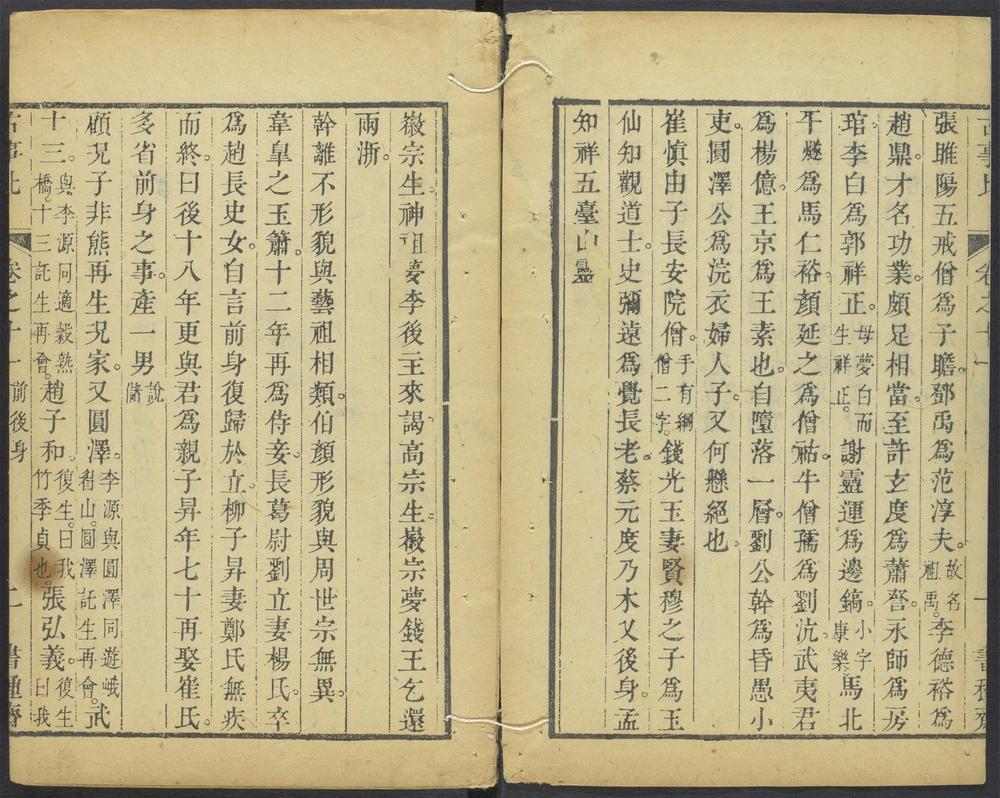 張睢陽五戒僧爲子瞻鄧禹爲范淳夫故名祖禹李德裕爲
趙鼎才名功業頗足相當至許玄度爲蕭詧永師爲房
琯李白爲郭祥正母夢白而生祥正謝靈運爲邊鎬小字康樂馬北
平燧爲馬仁裕顏延之爲僧祐牛僧孺爲劉沆武夷君
爲楊億王京爲王素也自墮落一層劉公幹爲昏愚小
吏圓澤公爲浣衣婦人子又何懸絕也
崔慎由子長安院僧手有綱僧二字錢光玉妻賢穆之子爲玉
仙知觀道士史彌遠爲覺長老蔡元度乃木乂後身孟
知祥五臺山靈
徽宗生神祖夢李後主來謁高宗生徽宗夢錢王乞還
兩浙
幹離不形貌與藝祖相類伯顏形貌與周世宗無異
韋臯之玉簫十二年再爲侍妾長葛尉劉立妻楊氏卒
爲趙長史女自言前身復歸於立柳子昇妻鄭氏無疾
而終曰後十八年更與君爲親子昇年七十再娶崔氏
多省前身之事產一男說儲
顧況子非熊再生況家又圓澤李源與圓澤同遊峨眉山圓澤託生再會武
十三與李源同適穀熟橋十三託生再會趙子和復生曰我竹季貞也張弘義復生曰我
卷之十一 前後身 二 書種齋